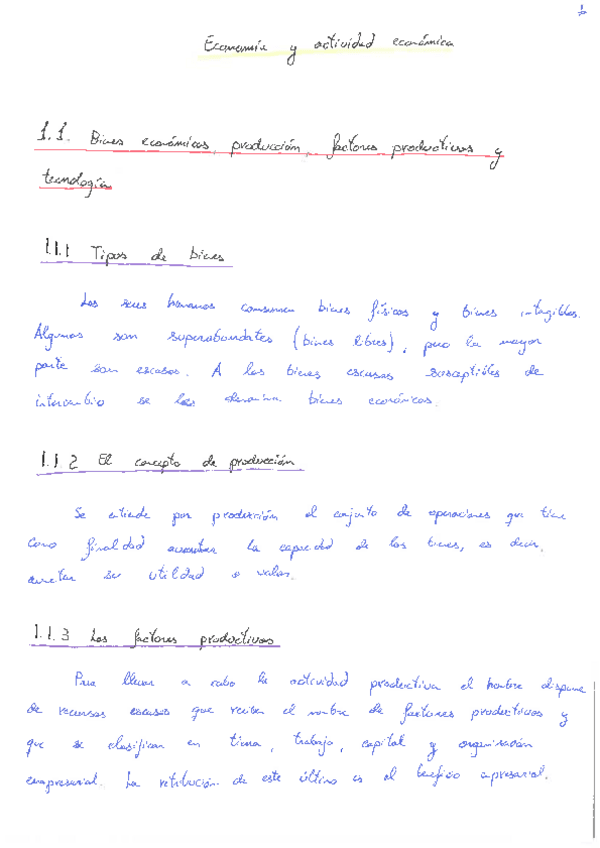 Economía y actividad económica
1.1. Bienes económicos, producción, factores productivos y
tecnología
1.1.1 Tipos de bienes
Los seres humanos consumen bienes físicos y bienes intagibles.
Algunos son superabondates (bienes libres), pero la mayor
parte son escasos. A los bienes escasos susceptibles de
intercambio se les denomina bienes económicos.
1.1.2 El concepto de producción
Se entiende por producción el conjunto de operaciones que tiene
como finalidad aumentar la capacidad de los bienes, es decir,
aumetar su utilidad o valor.
1.1.3 Los factores productivos
Para llevar a cabo la actividad productiva el hombre dispone
de recursos escasos que reciben el nombre de factores productivos y
que se clasifican en tierra, trabajo, capital y organización
empresarial. La retribución de este último es el beneficio empresarial.